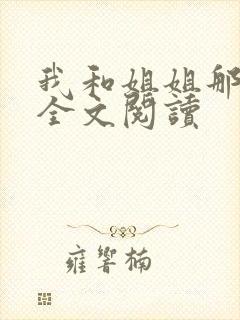 我和姐姐那
全文閱讀
雍響楠